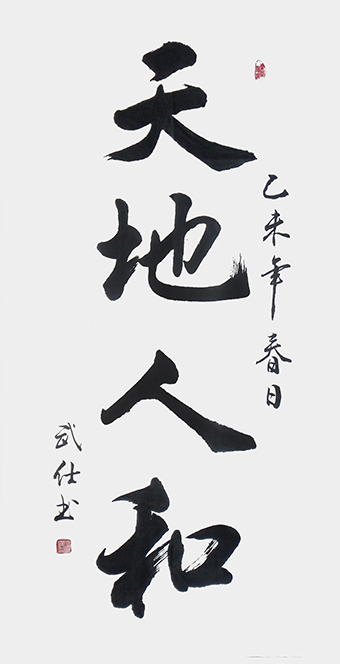 天地人和
乙未年春日
武仕书